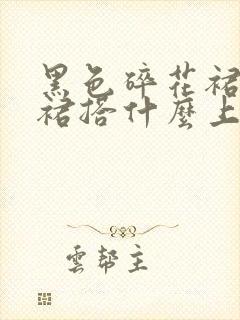 黑色碎花裙
裙搭什麼上
雲幫主